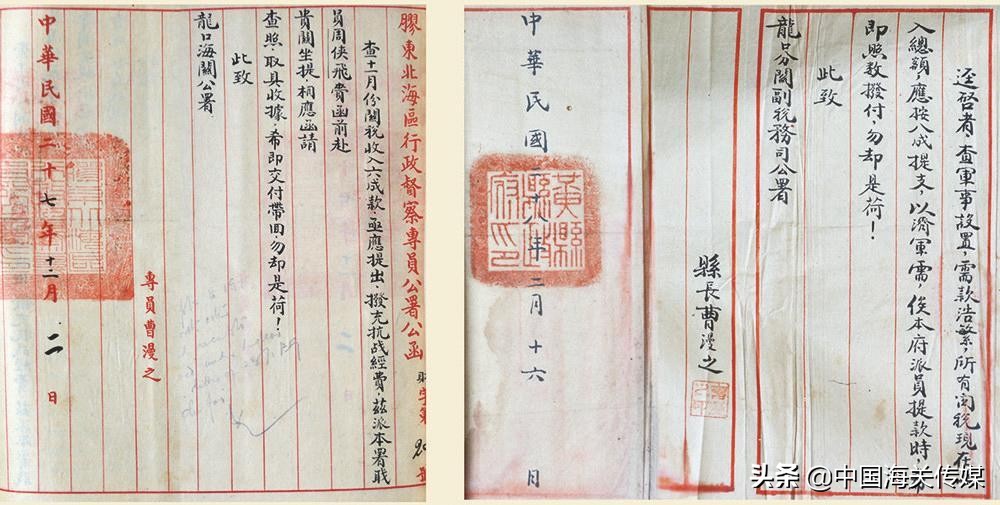 膠東北海區行政督察專員公署公函
查十一月份關稅收入六成款，亟應提出，撥充抗战經費，茲派本署職
員周俠飛賫函前赴
貴關坐提，相應函請
查照，取具收據，希即交付帶回，勿却是荷！
此致
龍口海關公署
專員曹漫之
中華民國二十七年十二月二日
逕啓者，查軍事設置，需款浩繁，所有関稅現在
入總額，應按八成提支，以濟軍需，俟本府派員提款時，希
即照数撥付，勿却是荷！
此致
龍口分関副稅務司公署
縣長曹漫之
中華民國二十八年二月十六
黃縣縣政府印
头条 @中国海关传媒